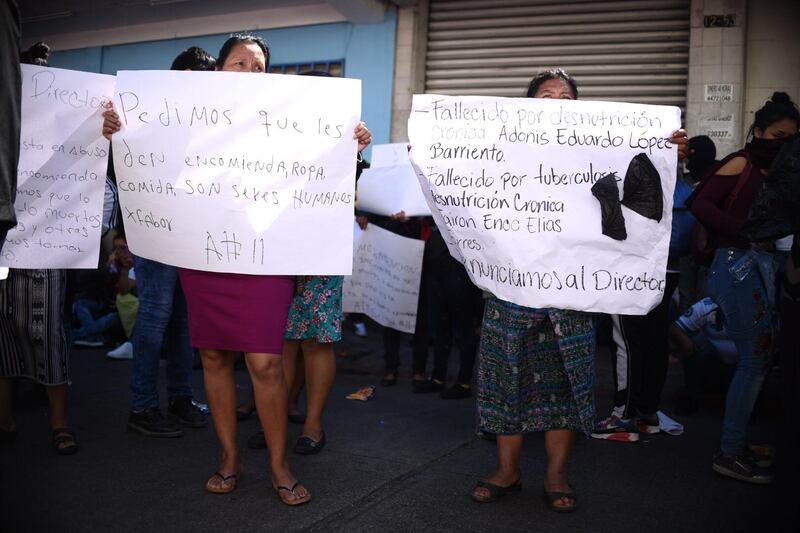 Director
en abuso
encomienda
mos que lo
muertos
y otras
tomar
Pedimos que les
den encomienda, ropa,
comida, son seres humanos
xfabor
Att 11
Fallecido por desnutrición
Cronica Adonis Eduardo López
Barriento.
Fallecido por tuberculosis
desnutrición Cronica
Jairon Enoc Elias
rres.
nunciamos al Director
12-53